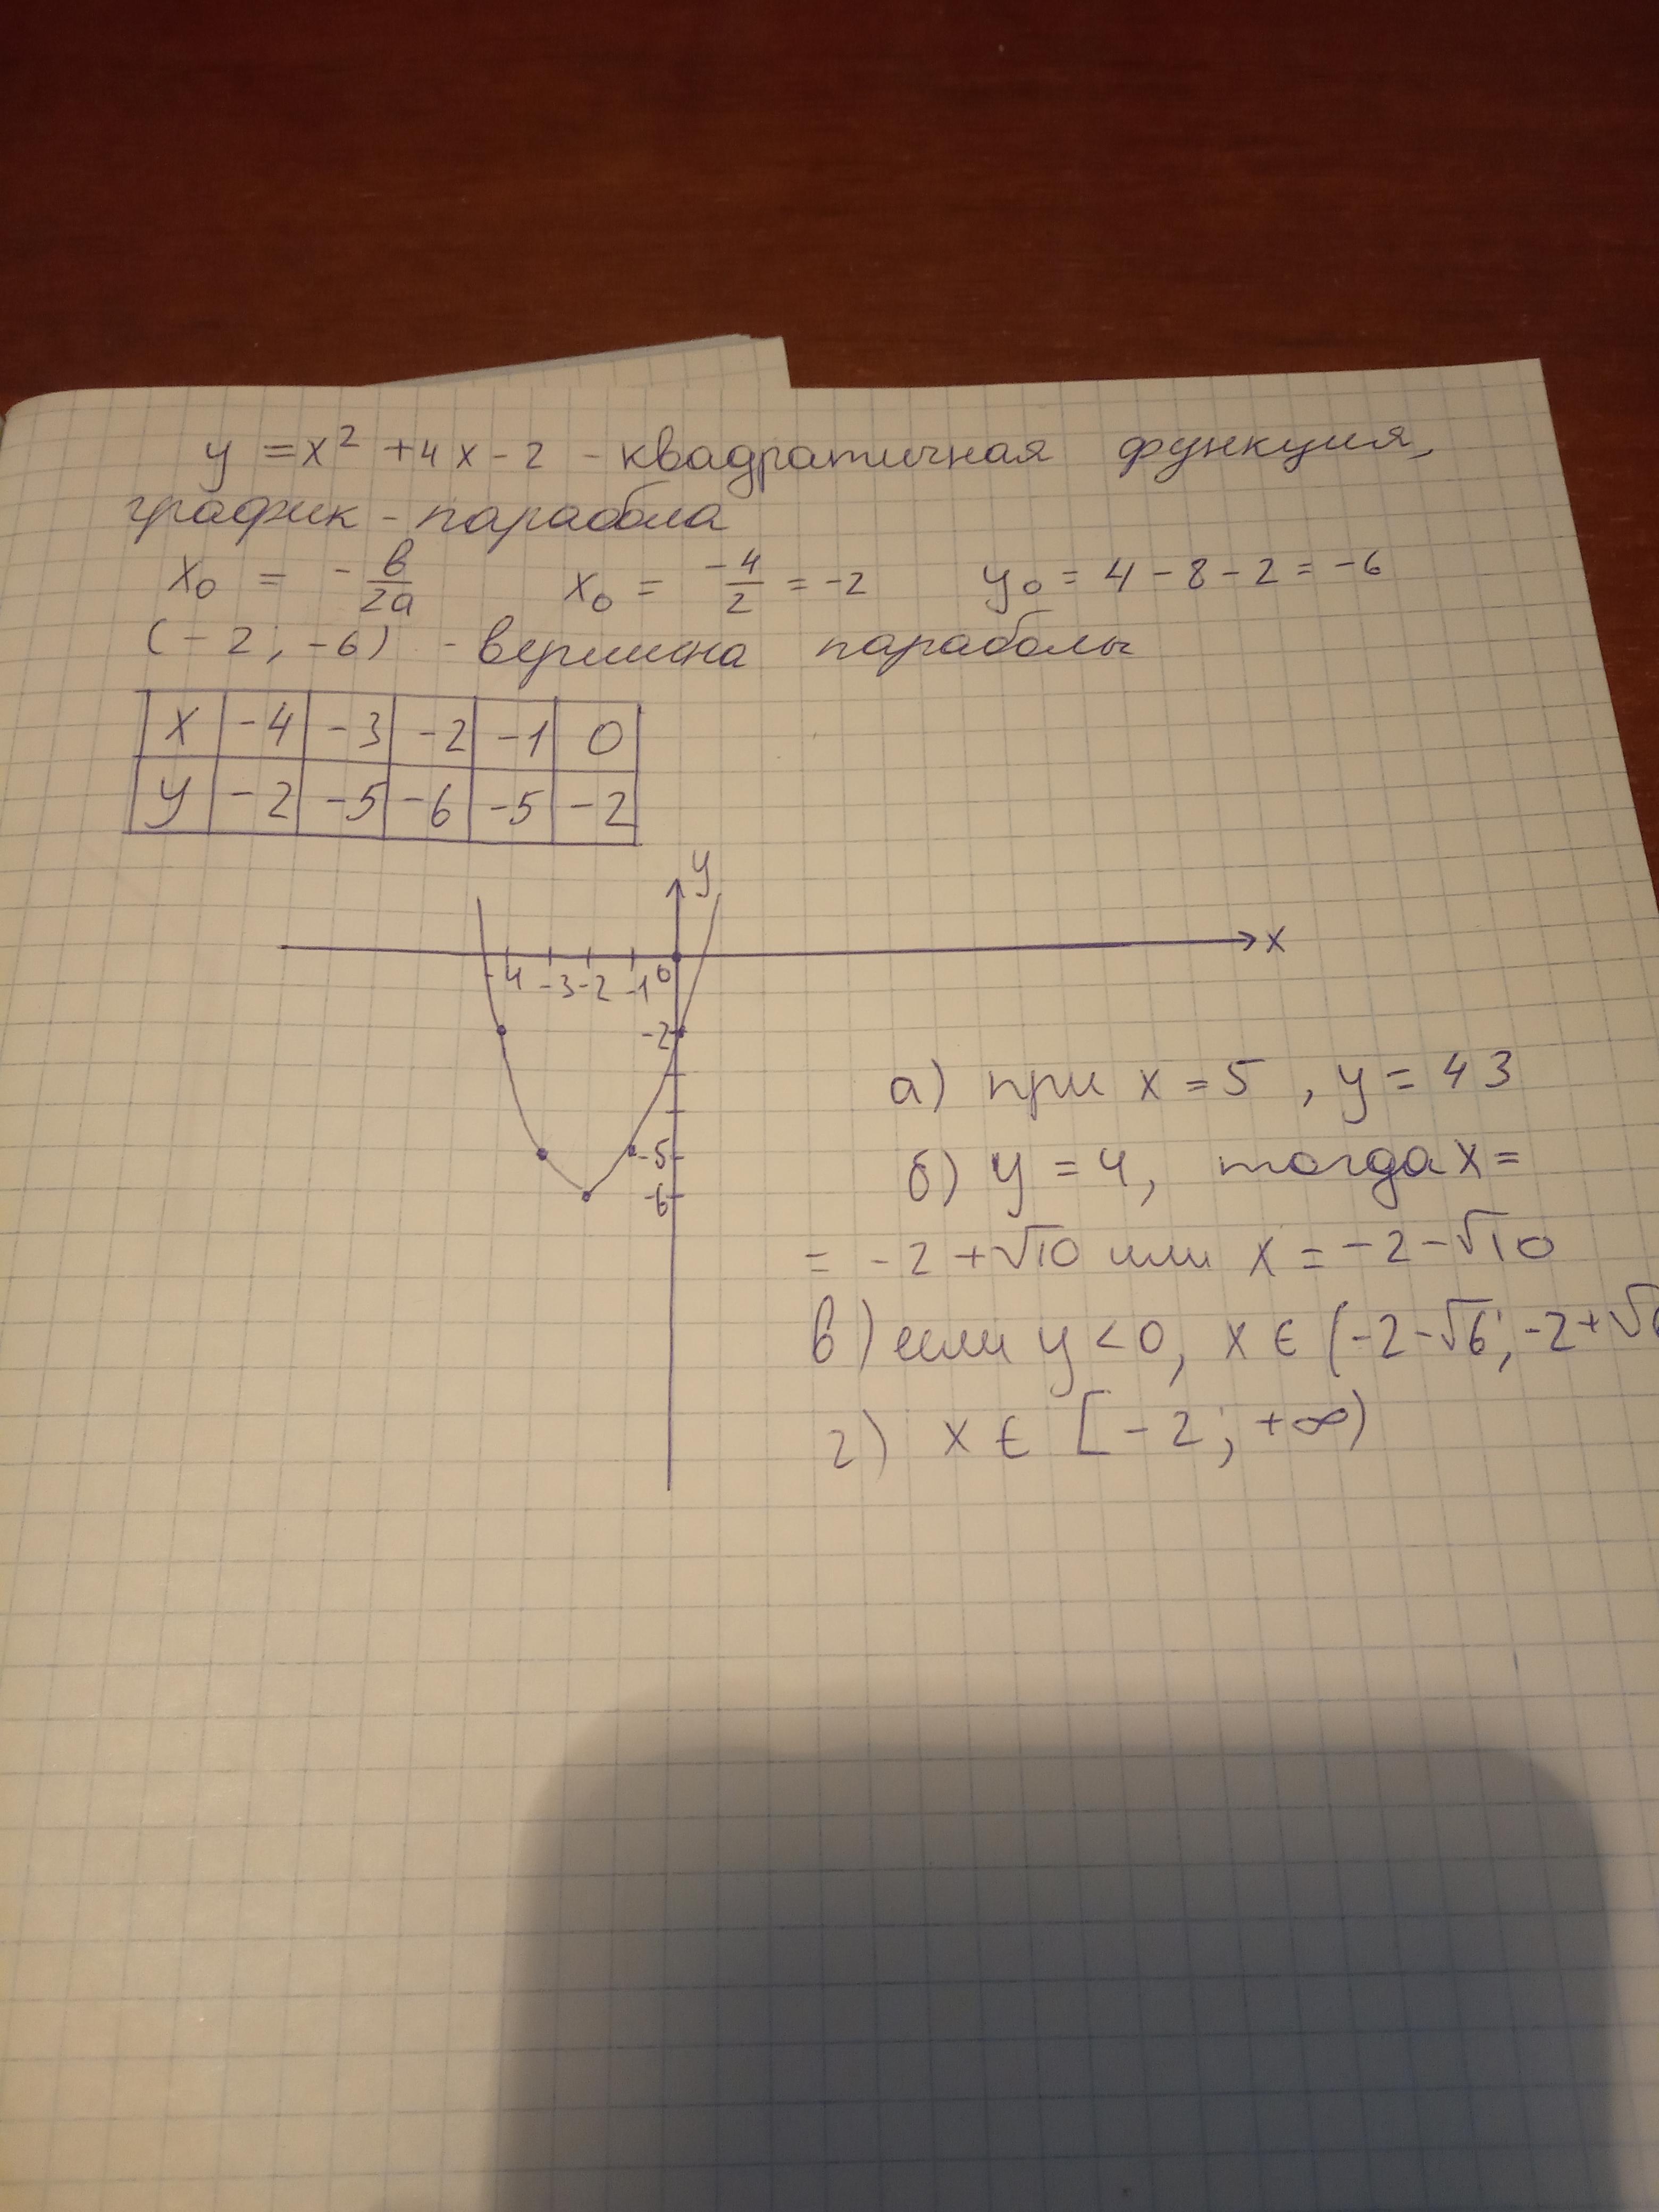 y = x² + 4x - 2 - квадратичная функция,
график - парабола
x₀ = - в/2a   x₀ = -4/2 = -2   y₀ = 4 - 8 - 2 = -6
(-2; -6) - вершина параболы
x -4 -3 -2 -1 0
y -2 -5 -6 -5 -2
y
x
-4 -3 -2 -1 0
-2
-5
-6
а) при x = 5, y = 43
б) y = 4, тогда x =
= -2 + √10 или x = -2 - √10
в) если y < 0, x ∈ (-2 - √6; -2 + √6
г) x ∈ [-2; +∞)